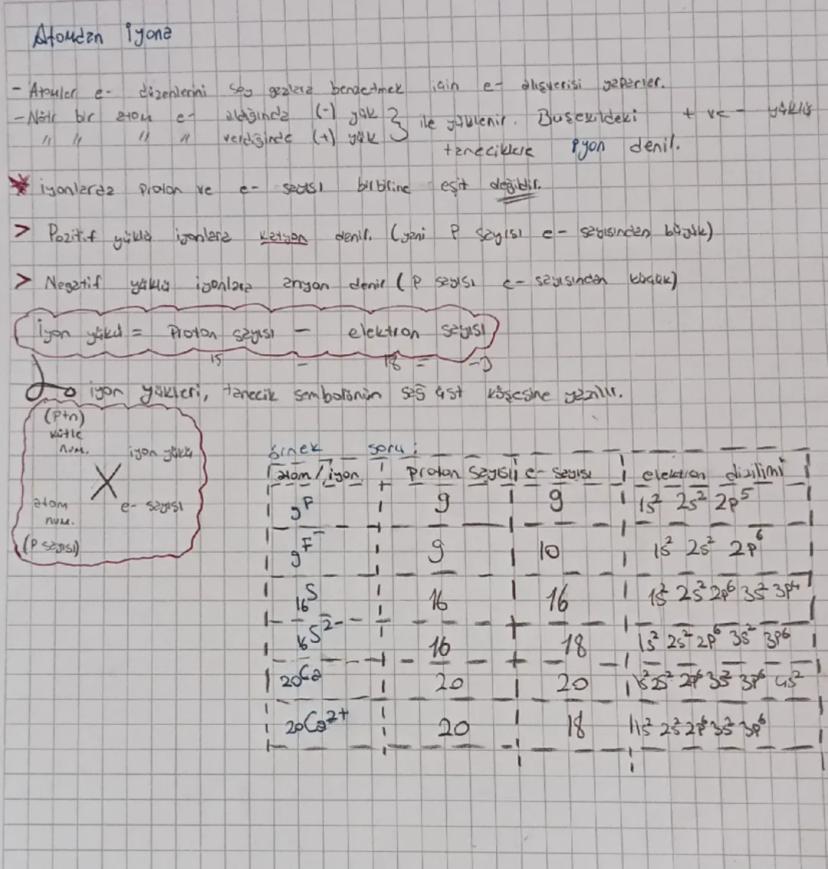 Atomdan İyona
- Atomlar e- düzenlerini soy gazlara benzetmek için e- alışverişi yaparlar.
- Nötr bir atom e- aldığında (-) yük } ile yüklenir. Buşekildeki + ve - yüklü
" " " " verdiğinde (+) yük } taneciklere iyon denil.
* iyonlarda proton ve e- sayısı birbirine eşit değildir.
> Pozitif yüklü iyonlara katyon denir. (yani P sayısı e- sayısından büyük)
> Negatif yüklü iyonlara anyon denir (P sayısı e- sayısından küçük)
İyon yükü = Proton sayısı - elektron sayısı
15 - 18 = -3
iyon yükleri, tanecik sembolünün sağ üst köşesine yazılır.
(p+n)
kütle
num.
iyon yükü
X
atom
num.
e- sayısı
(P sayısı)
örnek soru:
atom/iyon proton sayısı e- sayısı elektron dizilimi
9F 9 9 1s² 2s² 2p⁵
9F⁻ 9 10 1s² 2s² 2p⁶
16S 16 16 1s² 2s² 2p⁶ 3s² 3p⁴
16S²⁻ 16 18 1s² 2s² 2p⁶ 3s² 3p⁶
20Ca 20 20 1s² 2s² 2p⁶ 3s² 3p⁶ 4s²
20Ca²⁺ 20 18 1s² 2s² 2p⁶ 3s² 3p⁶